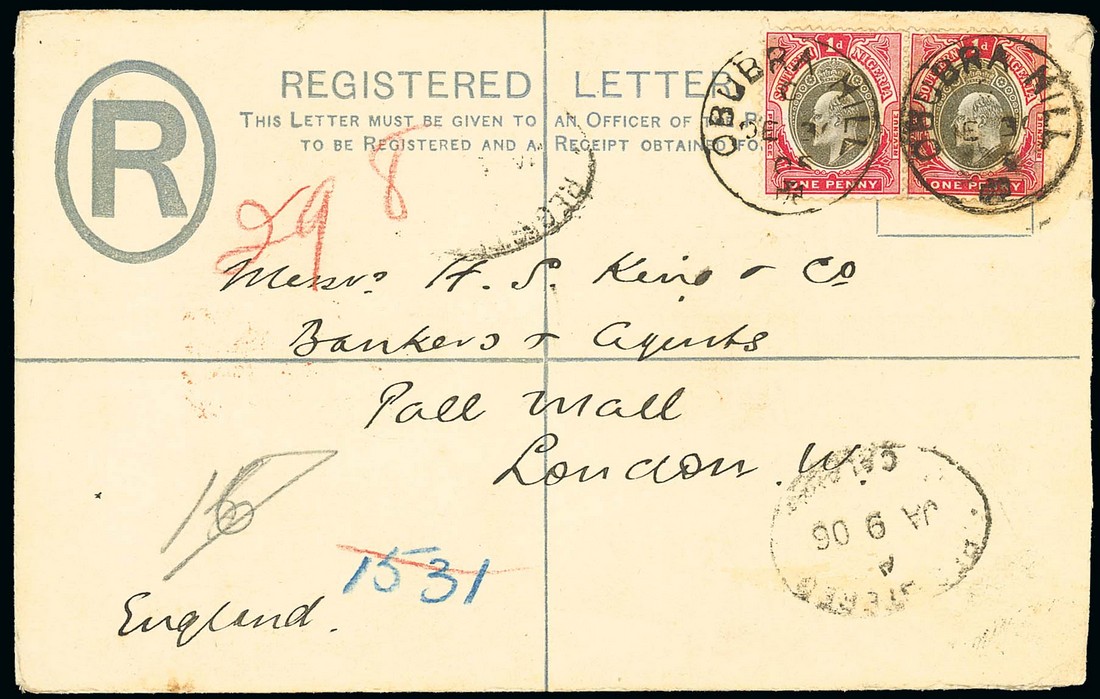 R
REGISTERED LETTER
THIS LETTER MUST BE GIVEN TO AN OFFICER OF THE
TO BE REGISTERED AND A RECEIPT OBTAINED FOR
1d 1d
SOUTHERN NIGERIA SOUTHERN NIGERIA
POSTAGE REVENUE POSTAGE REVENUE
ONE PENNY ONE PENNY
OBUBRA HILL
OBUBRA HILL
29 8
Messrs. H. S. King & Co
Bankers & Agents
Pall Mall
London. W.
REGISTERED
CALABAR
JA 9 06
1531
England.